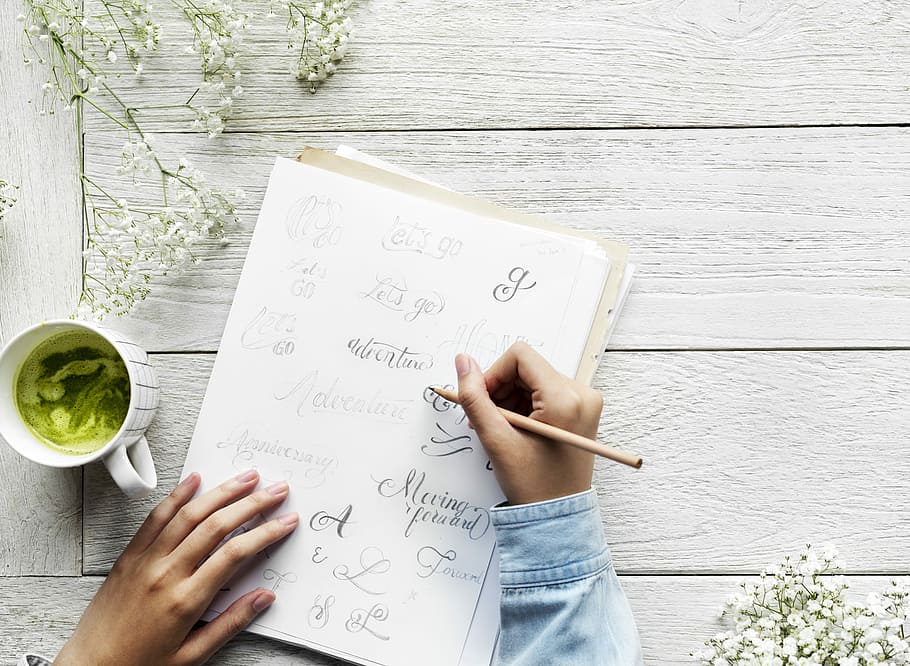 Let's
GO
Let's go
Let's
GO
Let's go
g
Let's
GO
adventure
Adventure
Anniversary
Moving
forward
A
Forward
E
L
L